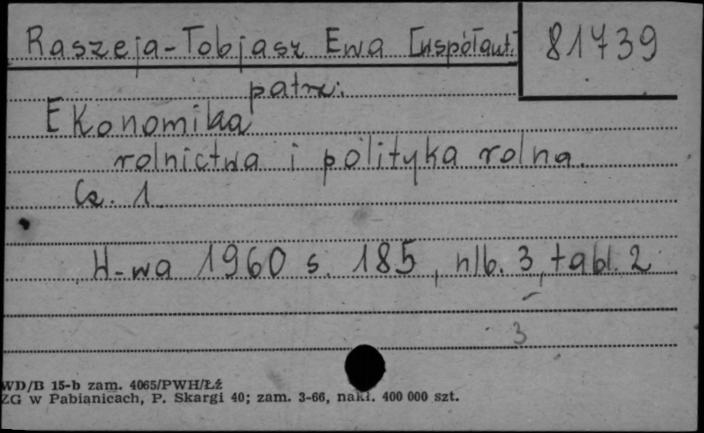 Raszeja-Tobjasz Ewa [współaut.]
81739
patrz:
Ekonomika
rolnictwa i polityka rolna.
Cz. 1.
W-wa 1960 s. 185, nlb. 3, tabl. 2
3
WD/B 15-b zam. 4065/PWH/Łź
ZG w Pabianicach, P. Skargi 40; zam. 3-66, nakł. 400 000 szt.